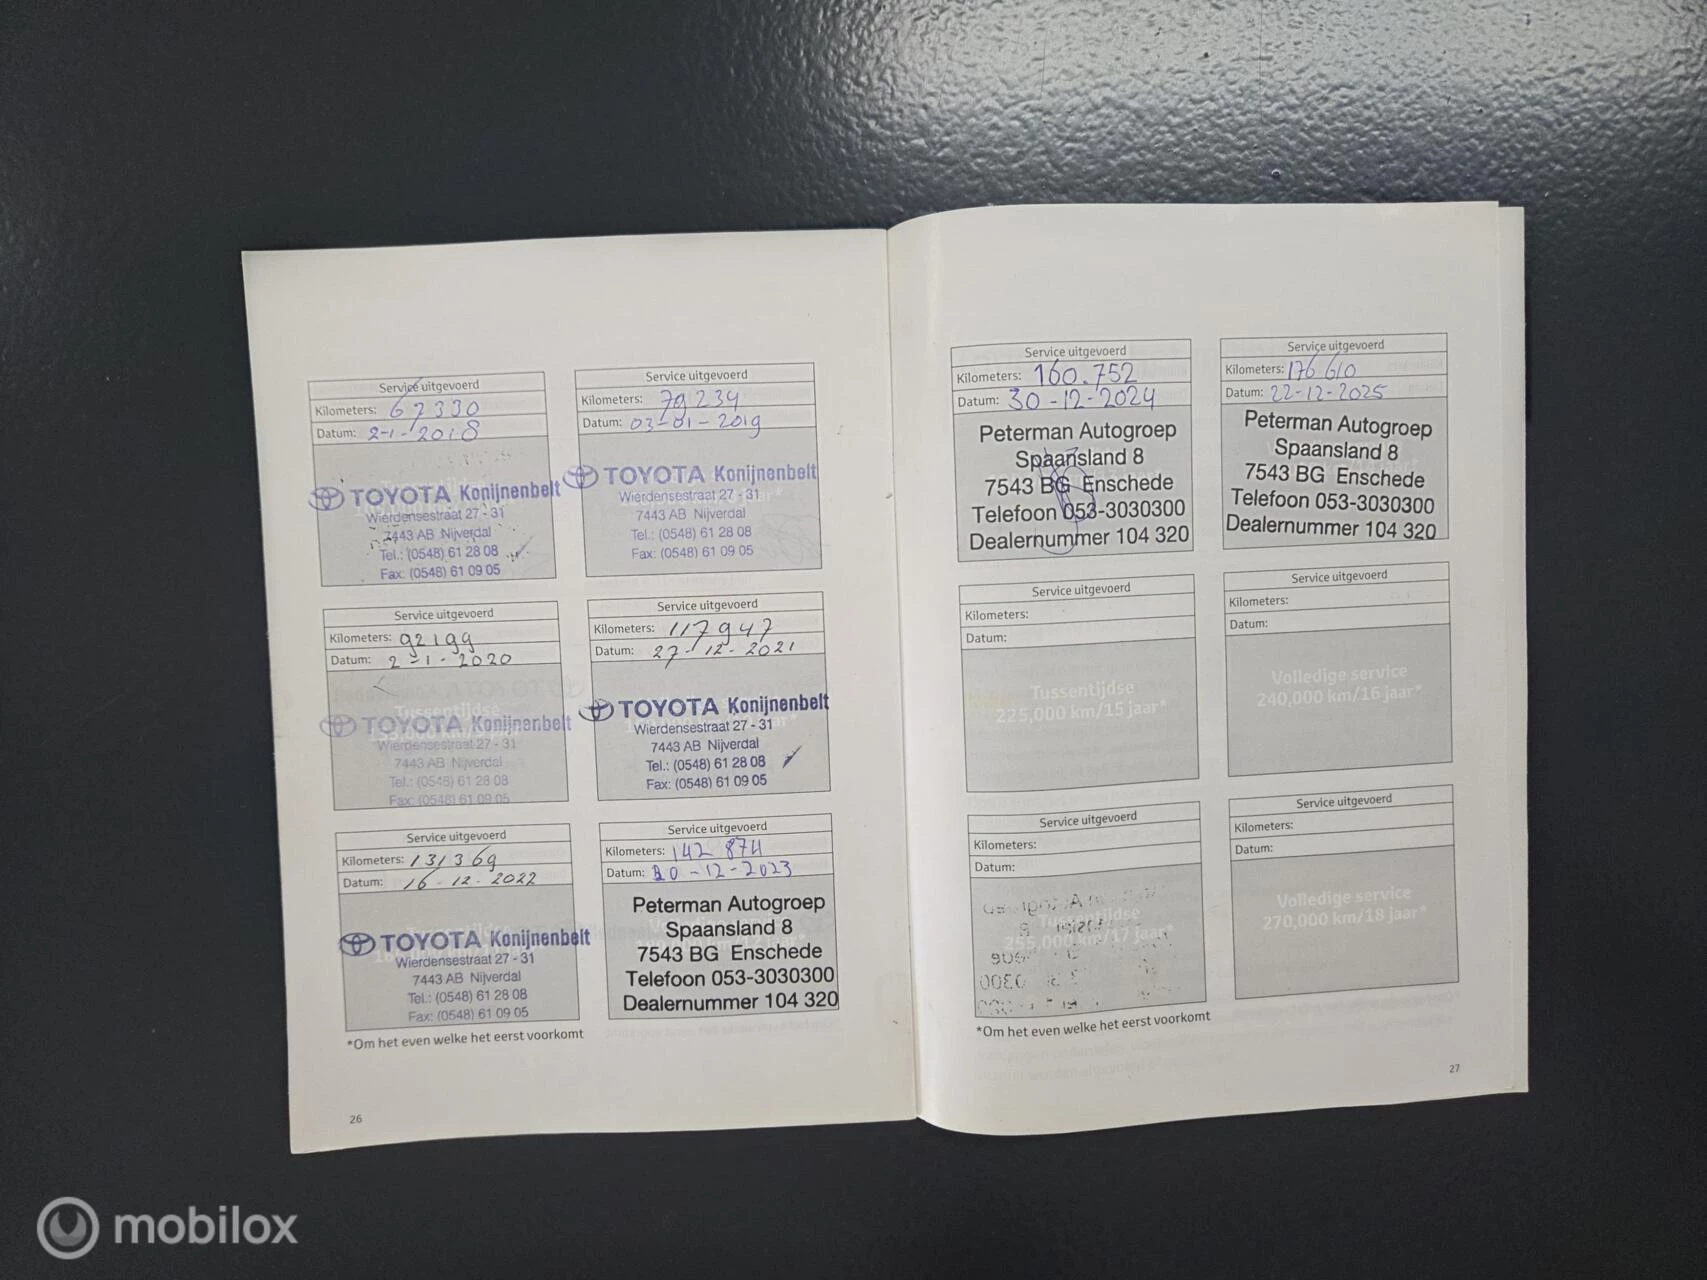 Service uitgevoerd
Kilometers: 67330
Datum: 2-1-2018
TOYOTA Konijnenbelt
Wierdensestraat 27 - 31
7443 AB Nijverdal
Tel.: (0548) 61 28 08
Fax: (0548) 61 09 05
Service uitgevoerd
Kilometers: 79234
Datum: 03-01-2019
TOYOTA Konijnenbelt
Wierdensestraat 27 - 31
7443 AB Nijverdal
Tel.: (0548) 61 28 08
Fax: (0548) 61 09 05
Service uitgevoerd
Kilometers: 92199
Datum: 2-1-2020
Tussentijdse
TOYOTA Konijnenbelt
Wierdensestraat 27 - 31
7443 AB Nijverdal
Tel.: (0548) 61 28 08
Fax: (0548) 61 09 05
Service uitgevoerd
Kilometers: 117947
Datum: 27-12-2021
TOYOTA Konijnenbelt
Wierdensestraat 27 - 31
7443 AB Nijverdal
Tel.: (0548) 61 28 08
Fax: (0548) 61 09 05
Service uitgevoerd
Kilometers: 131369
Datum: 16-12-2022
TOYOTA Konijnenbelt
Wierdensestraat 27 - 31
7443 AB Nijverdal
Tel.: (0548) 61 28 08
Fax: (0548) 61 09 05
Service uitgevoerd
Kilometers: 142 874
Datum: 20-12-2023
Peterman Autogroep
Spaansland 8
7543 BG Enschede
Telefoon 053-3030300
Dealernummer 104 320
*Om het even welke het eerst voorkomt
26
Service uitgevoerd
Kilometers: 160.752
Datum: 30-12-2024
Peterman Autogroep
Spaansland 8
7543 BG Enschede
Telefoon 053-3030300
Dealernummer 104 320
Service uitgevoerd
Kilometers: 176610
Datum: 22-12-2025
Peterman Autogroep
Spaansland 8
7543 BG Enschede
Telefoon 053-3030300
Dealernummer 104 320
Service uitgevoerd
Kilometers:
Datum:
Tussentijdse
225,000 km/15 jaar*
Service uitgevoerd
Kilometers:
Datum:
Volledige service
240,000 km/16 jaar*
Service uitgevoerd
Kilometers:
Datum:
Tussentijdse
255,000 km/17 jaar*
Service uitgevoerd
Kilometers:
Datum:
Volledige service
270,000 km/18 jaar*
*Om het even welke het eerst voorkomt
27
mobilox